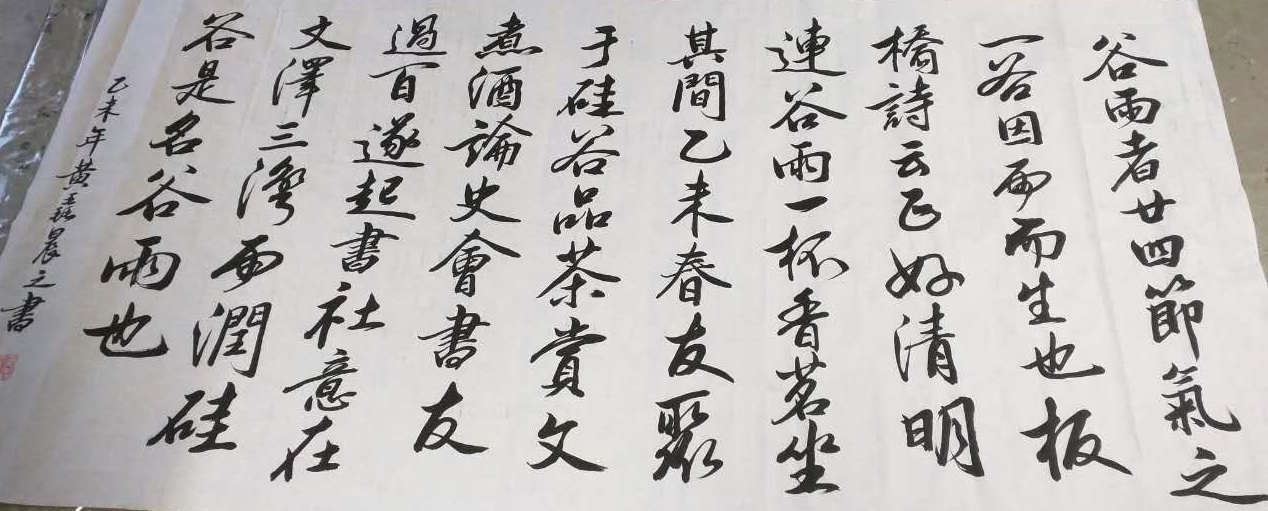 谷雨者廿四節氣之
一谷因雨而生也板
橋詩云正好清明
連谷雨一杯香茗坐
其間乙未春友聚
于硅谷品茶賞文
煮酒論史會書友
過百遂起書社意在
文澤三灣雨潤硅
谷是名谷雨也
乙未年黄磊晨之書